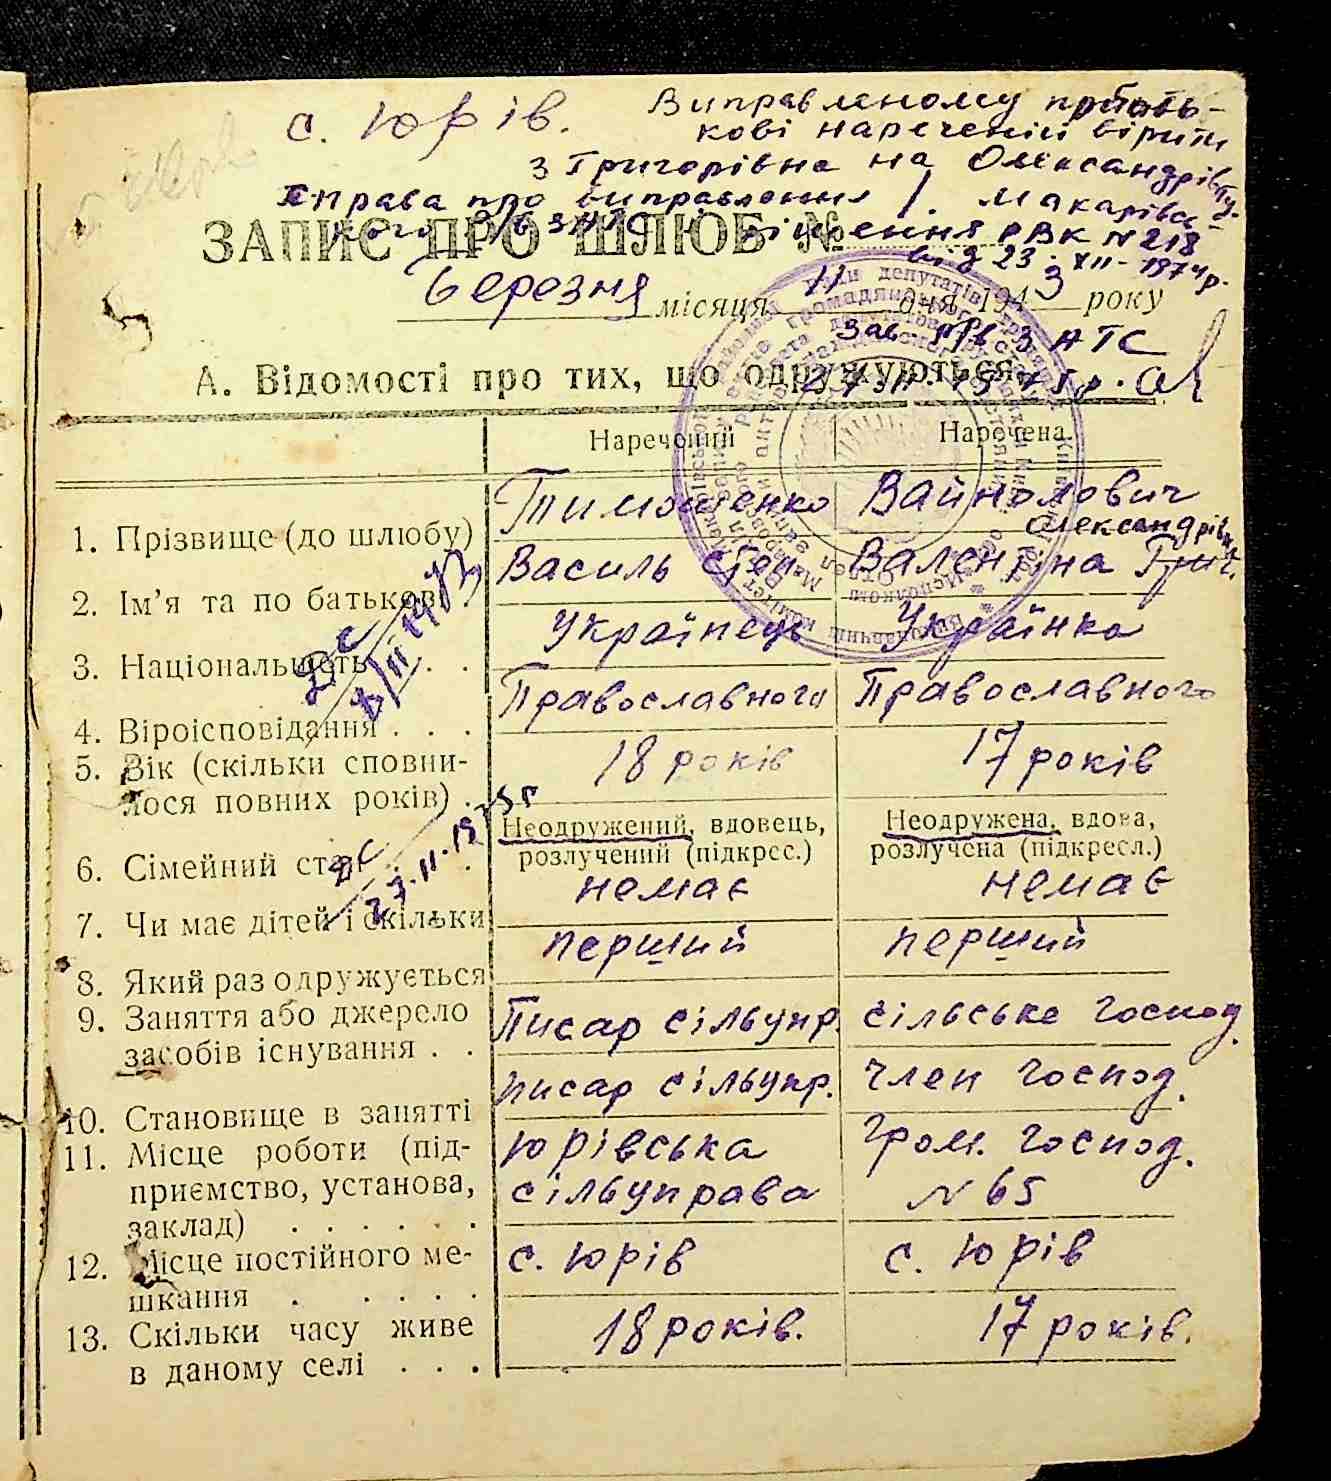 с. Юрів.
Виправленому по батькові нареченій вірити
з Григорівна на Олександрівну.
Справа про виправлення /. Макарівського р/в ЗАГС рішення РВК №218
від 23-XII-1974р.
ЗАПИС ПРО ШЛЮБ №
Березня місяця 11 дня 1943 року
Зав. р/в ЗАГС
А. Відомості про тих, що одружуються
Наречений Наречена
1. Прізвище (до шлюбу) Тимошенко Вайнолович
Олександрівн.
2. Ім'я та по батькові . Василь Степ. Валентіна Григ.
3. Національність . . Українець Українка
4. Віроісповідання . . . Православного Православного
5. Вік (скільки сповни-
лося повних років) . 18 років 17 років
6. Сімейний стан . . . Неодружений, вдовець, розлучений (підкрес.) Неодружена, вдова, розлучена (підкресл.)
7. Чи має дітей і скільки немає немає
8. Який раз одружується перший перший
9. Заняття або джерело
засобів існування . . Писар сільупр. сільське господ.
10. Становище в занятті писар сільупр. член господ.
11. Місце роботи (під-
приємство, установа,
заклад) . . . . . . Юрівська сільуправа Гром. господ. №65
12. Місце постійного ме-
шкання . . . . . с. Юрів с. Юрів
13. Скільки часу живе
в даному селі . . . 18 років. 17 років.